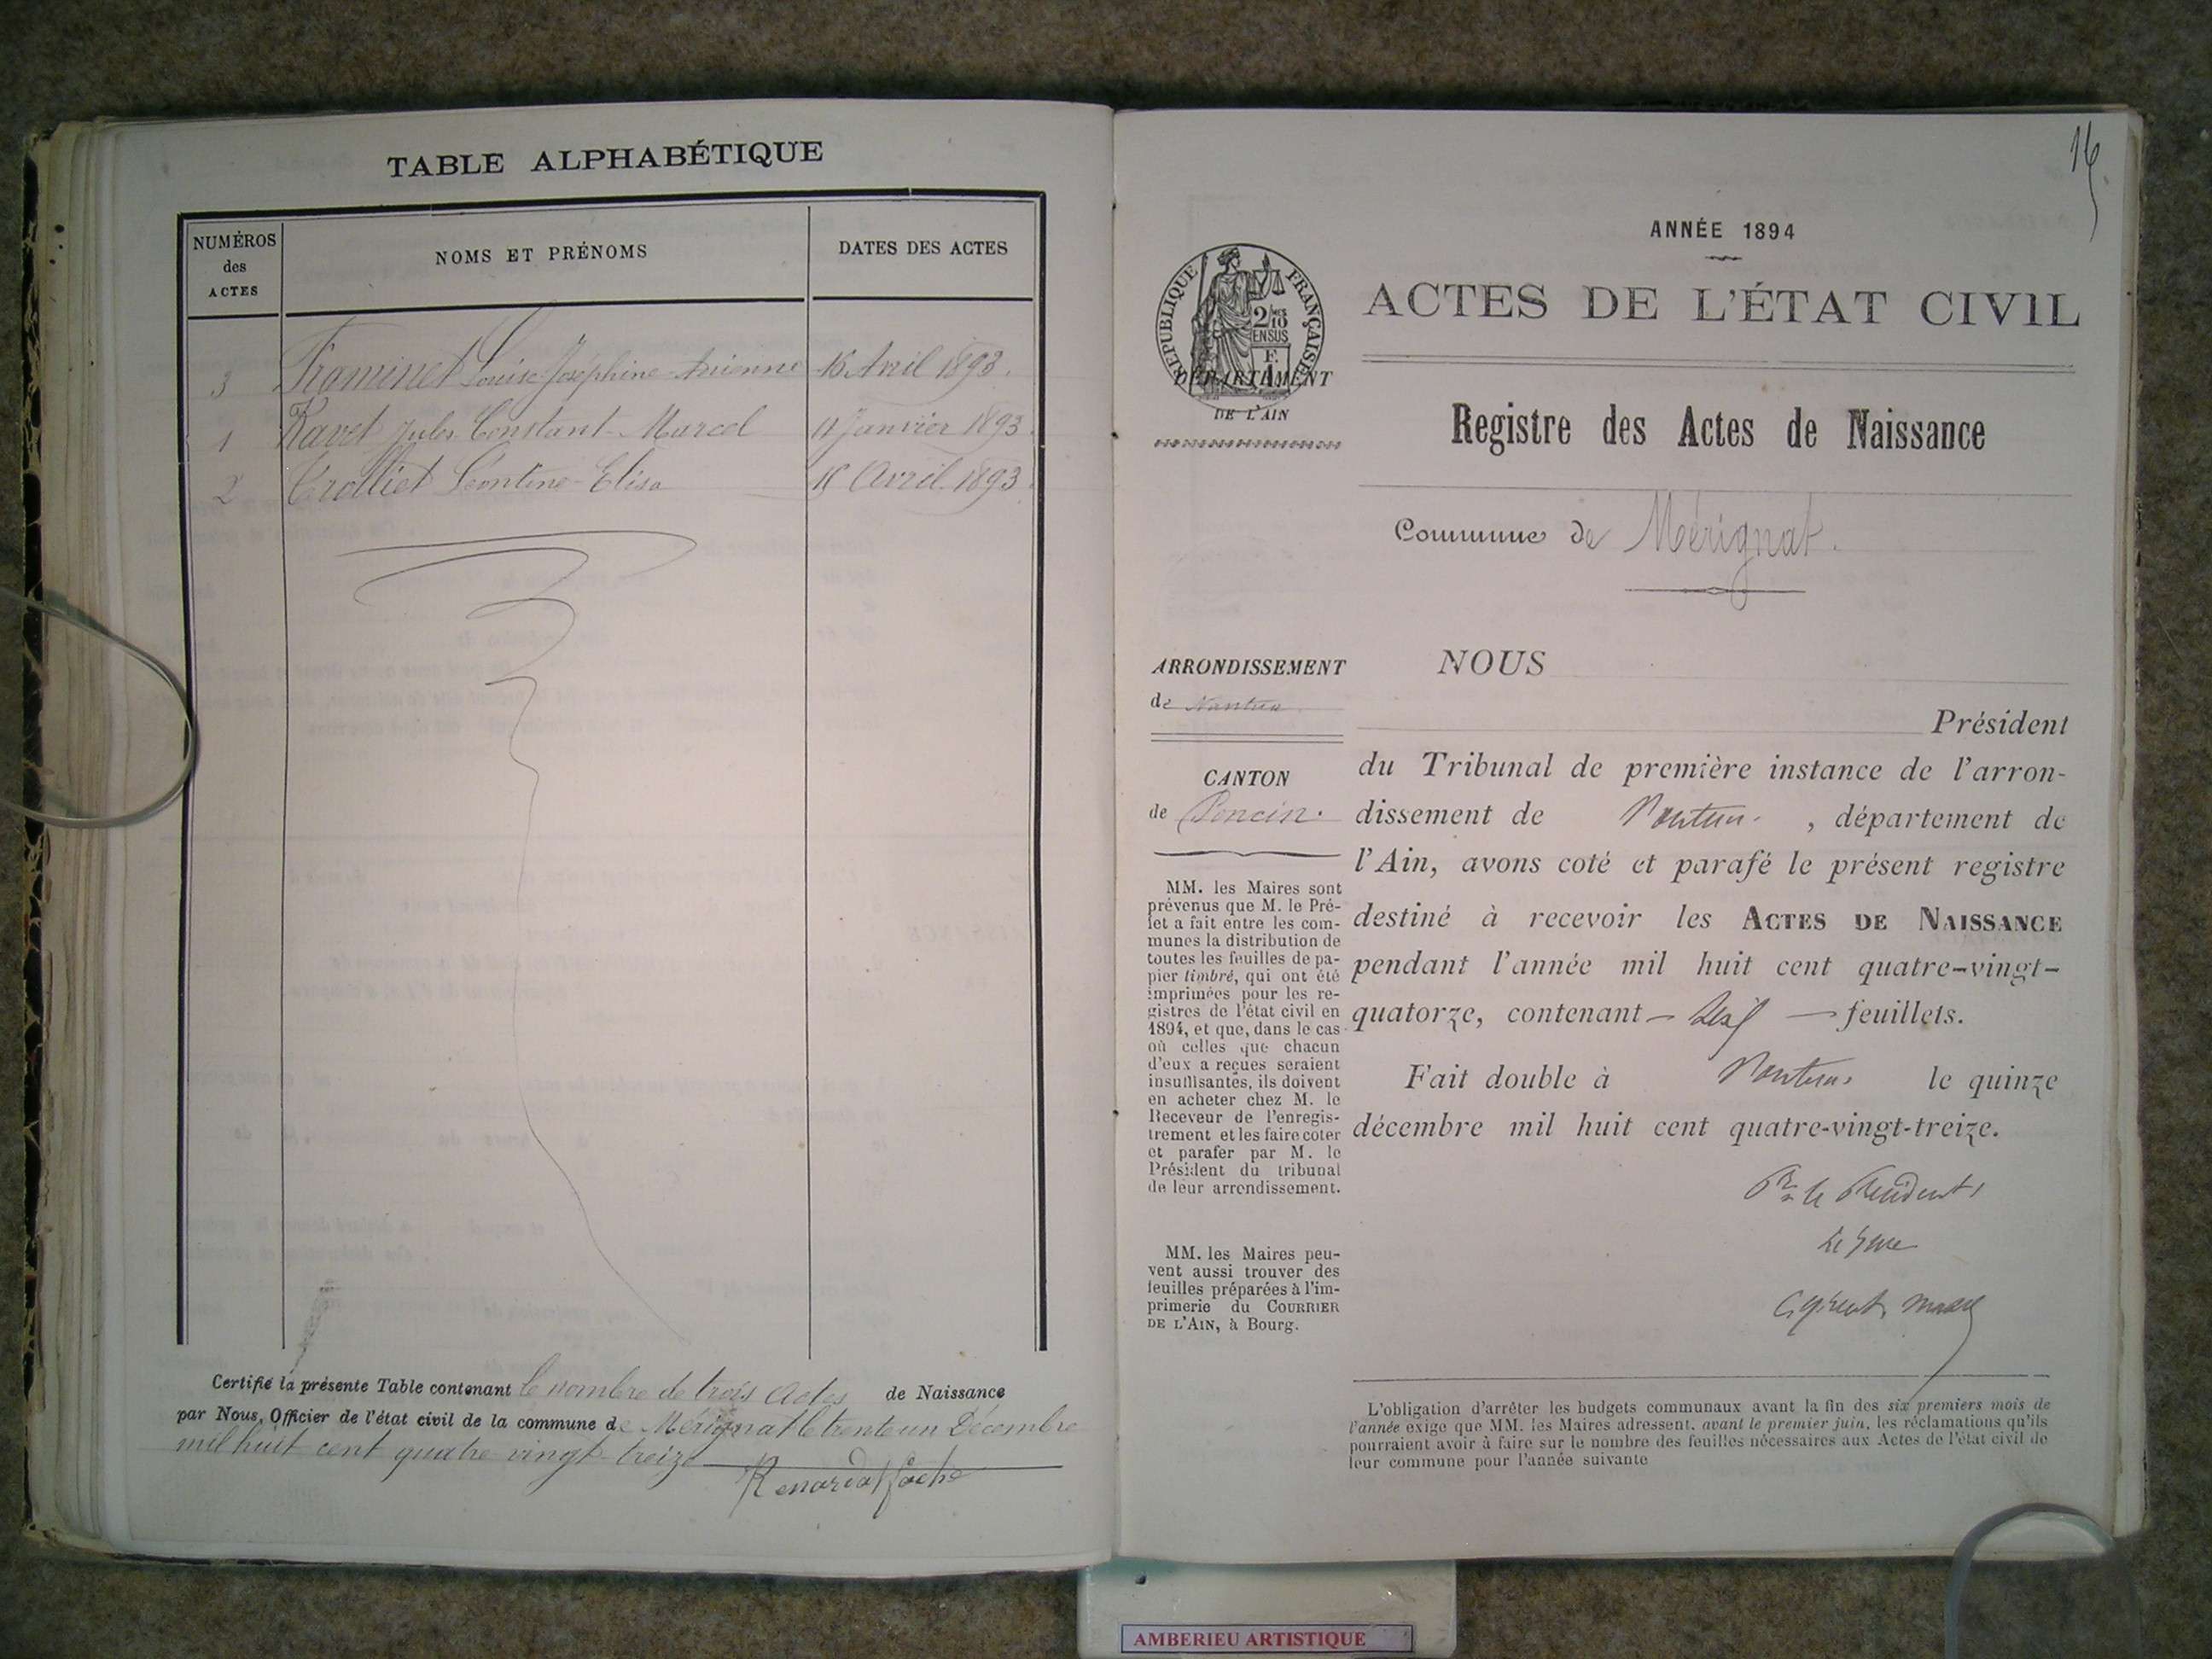 TABLE ALPHABÉTIQUE
NUMÉROS
des
ACTES
NOMS ET PRÉNOMS
DATES DES ACTES
3 Louise Joséphine 16 Avril 1893.
1 Ravet Jules Constant Marcel 11 Janvier 1893.
2 Léontine-Elisa 15 Avril 1893.
Certifié la présente Table contenant le nombre de trois Actes de Naissance
par Nous, Officier de l'état civil de la commune de Mérignat le trente un Décembre
mil huit cent quatre vingt-treize
16
ANNÉE 1894
ACTES DE L'ÉTAT CIVIL
RÉPUBLIQUE FRANÇAISE
2/10
EN SUS
F.
1
DÉPARTEMENT
DE L'AIN
Registre des Actes de Naissance
Commune de Mérignat.
ARRONDISSEMENT
de Nantua
CANTON
de Poncin.
MM. les Maires sont
prévenus que M. le Pré-
fet a fait entre les com-
munes la distribution de
toutes les feuilles de pa-
pier timbré, qui ont été
imprimées pour les re-
gistres de l'état civil en
1894, et que, dans le cas
où celles que chacun
d'eux a reçues seraient
insuffisantes, ils doivent
en acheter chez M. le
Receveur de l'enregis-
trement et les faire coter
et parafer par M. le
Président du tribunal
de leur arrondissement.
MM. les Maires peu-
vent aussi trouver des
feuilles préparées à l'im-
primerie du COURRIER
DE L'AIN, à Bourg.
NOUS
Président
du Tribunal de première instance de l'arron-
dissement de Nantua , département de
l'Ain, avons coté et parafé le présent registre
destiné à recevoir les ACTES DE NAISSANCE
pendant l'année mil huit cent quatre-vingt-
quatorze, contenant feuillets.
Fait double à Nantua le quinze
décembre mil huit cent quatre-vingt-treize.
Pr le Président,
Le Juge
L'obligation d'arrêter les budgets communaux avant la fin des six premiers mois de
l'année exige que MM. les Maires adressent, avant le premier juin, les réclamations qu'ils
pourraient avoir à faire sur le nombre des feuilles nécessaires aux Actes de l'état civil de
leur commune pour l'année suivante
AMBERIEU ARTISTIQUE